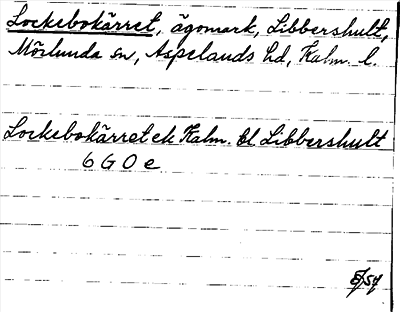 Lockebokärret, ägomark, Libbershult,
Mörlunda sn, Aspelands hd, Kalm. l.
Lockebokärret ek Kalm. bl Libbershult
6 G O e